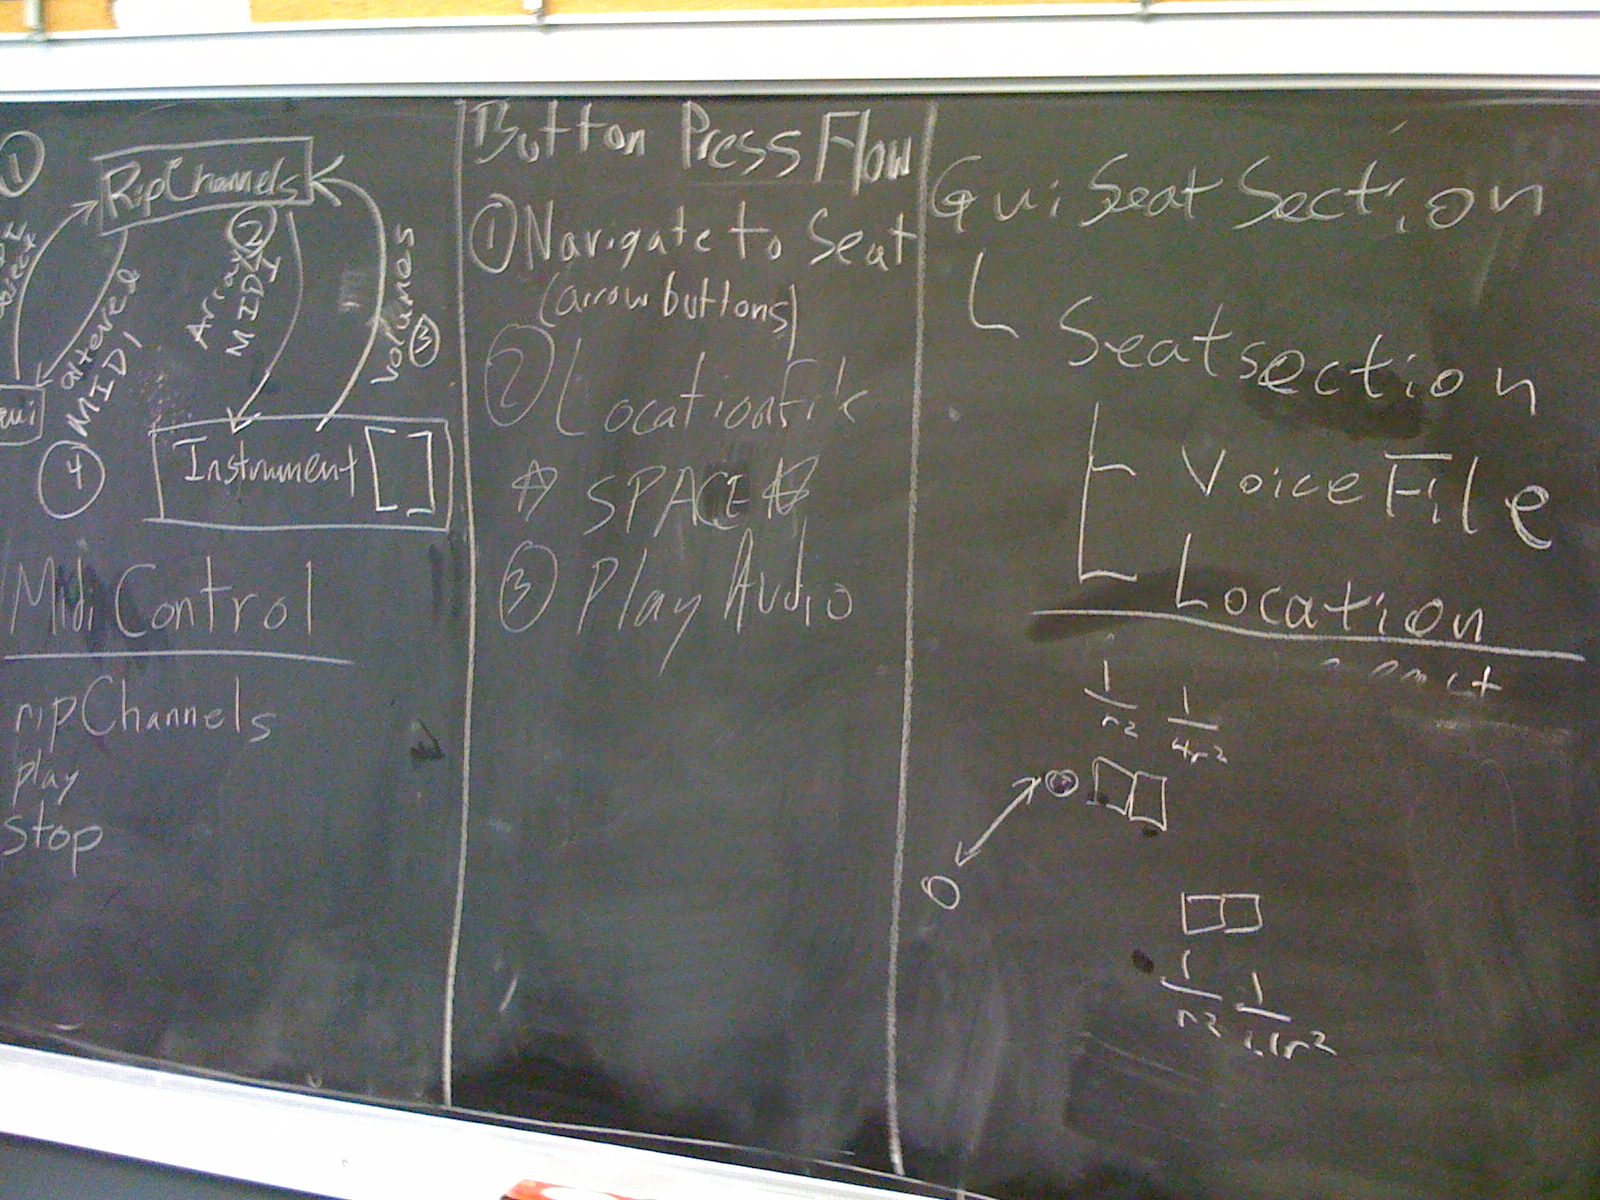 ①
RipChannels
②
Array
MIDI
Volumes
③
altered
MIDI
④
Gui
Instrument [ ]
Midi Control
ripChannels
play
stop
Button Press Flow
① Navigate to Seat
(arrow buttons)
② LocationFile
☆ SPACE ☆
③ Play Audio
Gui Seat Section
Seatsection
VoiceFile
Location
1/r² 1/4r²
1/r² 1/1.1r²